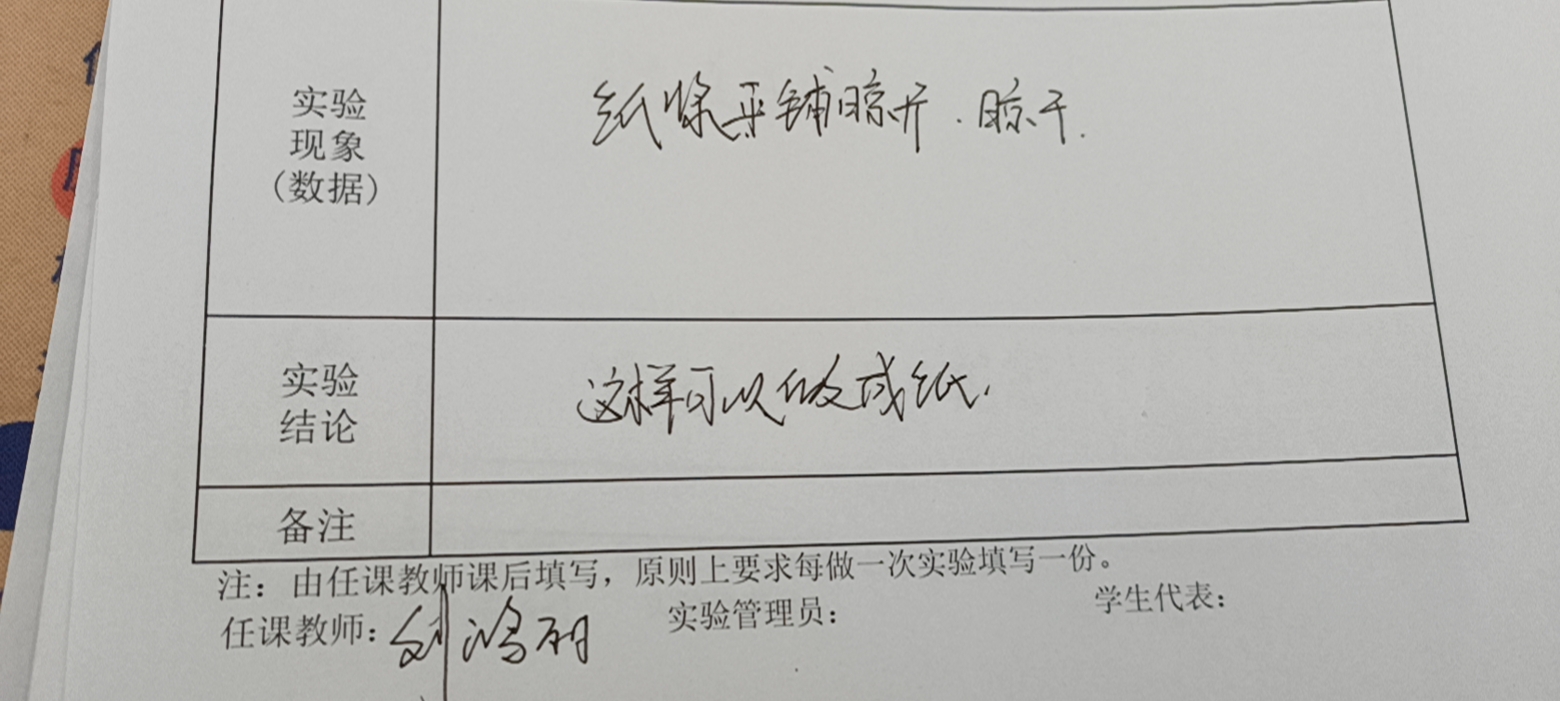 实验
现象
(数据)
纸浆平铺晾开.晾干.
实验
结论
这样可以做成纸.
备注
注：由任课教师课后填写，原则上要求每做一次实验填写一份。
任课教师：刘鸿丽 实验管理员： 学生代表：